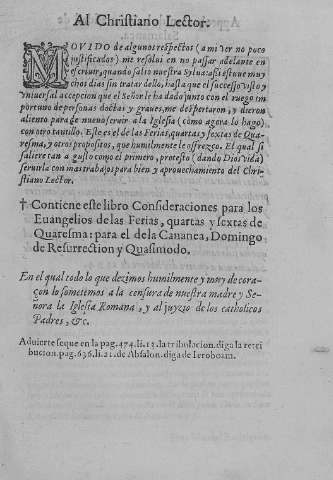 Al Christiano Lector.
MOVIDO de algunos respectos (a mi ver no poco
justificados) me resolui en no passar adelante en
escriuir, quando salio nuestra Sylua: assi estuue mu
chos dias sin tratar dello, hasta que el successo visto y
vniuersal accepcion que el Señor le ha dado junto con el ruego im
portuno de personas doctas y graues, me despertaron, y dieron
aliento para de nueuo seruir a la Iglesia (como agora lo hago)
con otro tautillo. Este es el de las Ferias, quartas y sextas de Qua-
resma, y otros propositos, que humilmente le offrezco. El qual si
saliere tan a gusto como el primero, protesto (dando Dios vida)
seruirla con mas trabajos para bien y aprouechamiento del Chri-
stiano Lector.
† Contiene este libro Consideraciones para los
Euangelios de las Ferias, quartas y sextas de
Quaresma: para el de la Cananea, Domingo
de Resurrection y Quasimodo.
En el qual todo lo que dezimos humilmente y muy de cora-
çon lo sometemos a la censura de nuestra madre y Se-
ñora la Iglesia Romana, y al juyzio de los catholicos
Padres, &c.
Aduierte se que en la pag. 474. li. 13. la tribulacion. diga la retri
bucion. pag. 636. li. 21. de Absalon. diga de Ieroboam.